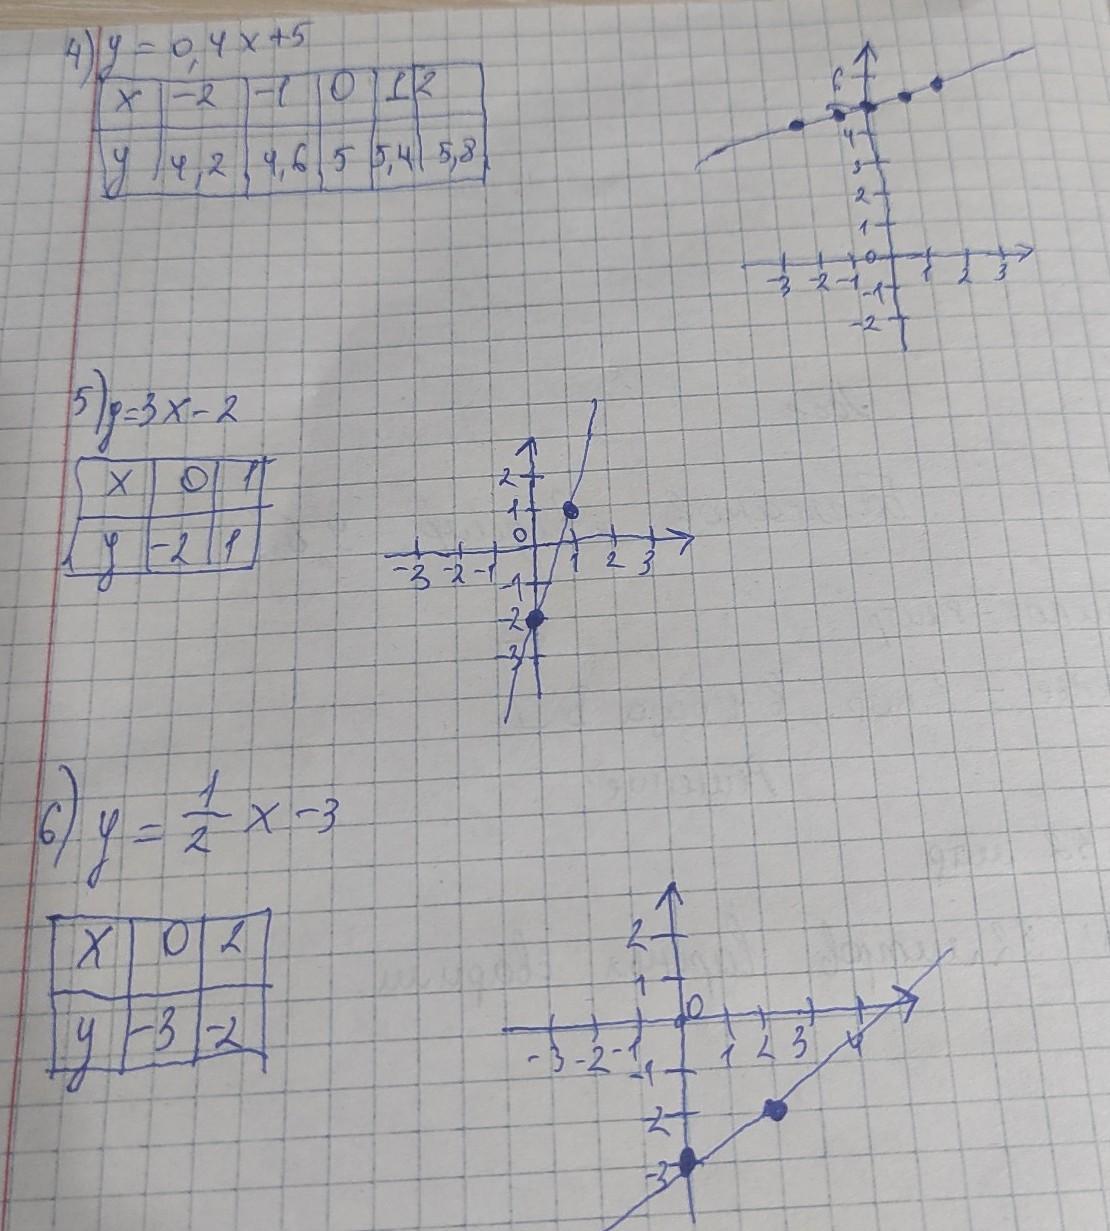 4) y = 0,4x+5
x -2 -1 0 1 2
y 4,2 4,6 5 5,4 5,8
6
4
3
2
1
0
-3 -2 -1 1 2 3
-1
-2
5) y=3x-2
x 0 1
y -2 1
2
1
0
-3 -2 -1 1 2 3
-1
-2
-3
6) y = 1/2 x -3
x 0 2
y -3 -2
2
1
0
-3 -2 -1 1 2 3 4
-1
-2
-3